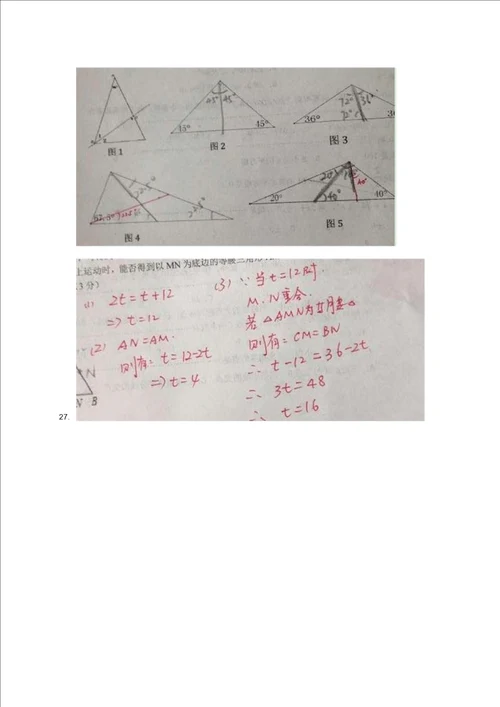 45° 45°
45° 45°
72° 36°
36° 72° 36
图1 图2 图3
20°
20° 40° 40°
图4 图5
上运动时，能否得到以MN为底边的等腰三角形
3分)
(1) 2t=t+12
⇒t=12
(2) AN=AM.
则有: t=12-2t
⇒t=4
N
N B
(3) ∵当t=12时
M.N重合.
若△AMN为等腰△
则有: CM=BN
∴ t-12=36-2t
∴ 3t=48
∴ t=16
27.